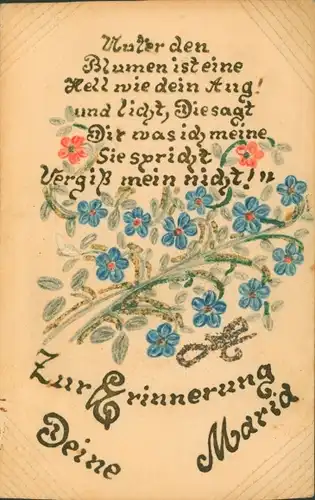 Unter den
Blumen ist eine
Hell wie dein Aug!
und licht, Die sagt
Dir was ich meine
Sie spricht
Vergiß mein nicht!"
Zur Erinnerung
Deine Maria